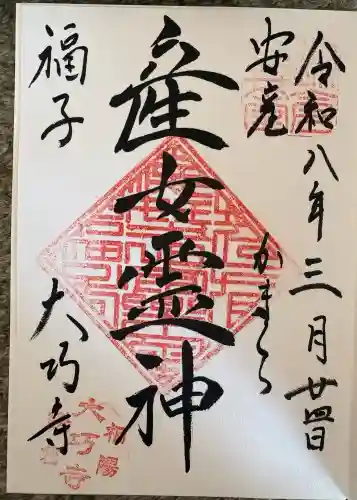 令和八年三月廿四日
安産
かまくら
産女霊神
福子
大巧寺
大巧寺